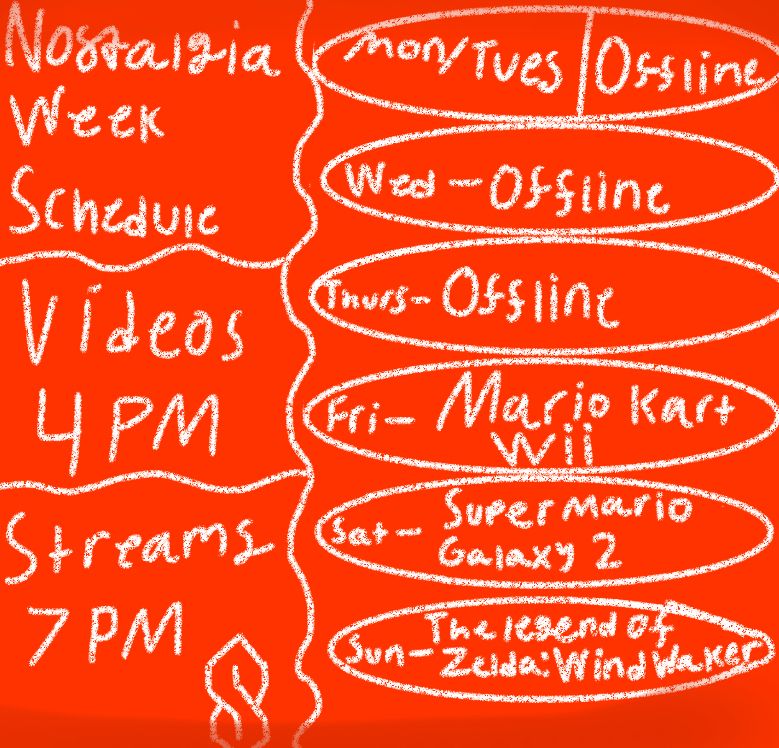 Nostalgia
Week
Schedule
Videos
4 PM
Streams
7 PM
Mon/Tues | Offline
Wed - Offline
Thurs - Offline
Fri - Mario Kart
Wii
Sat - Super Mario
Galaxy 2
Sun - The legend of
Zelda: Wind Waker